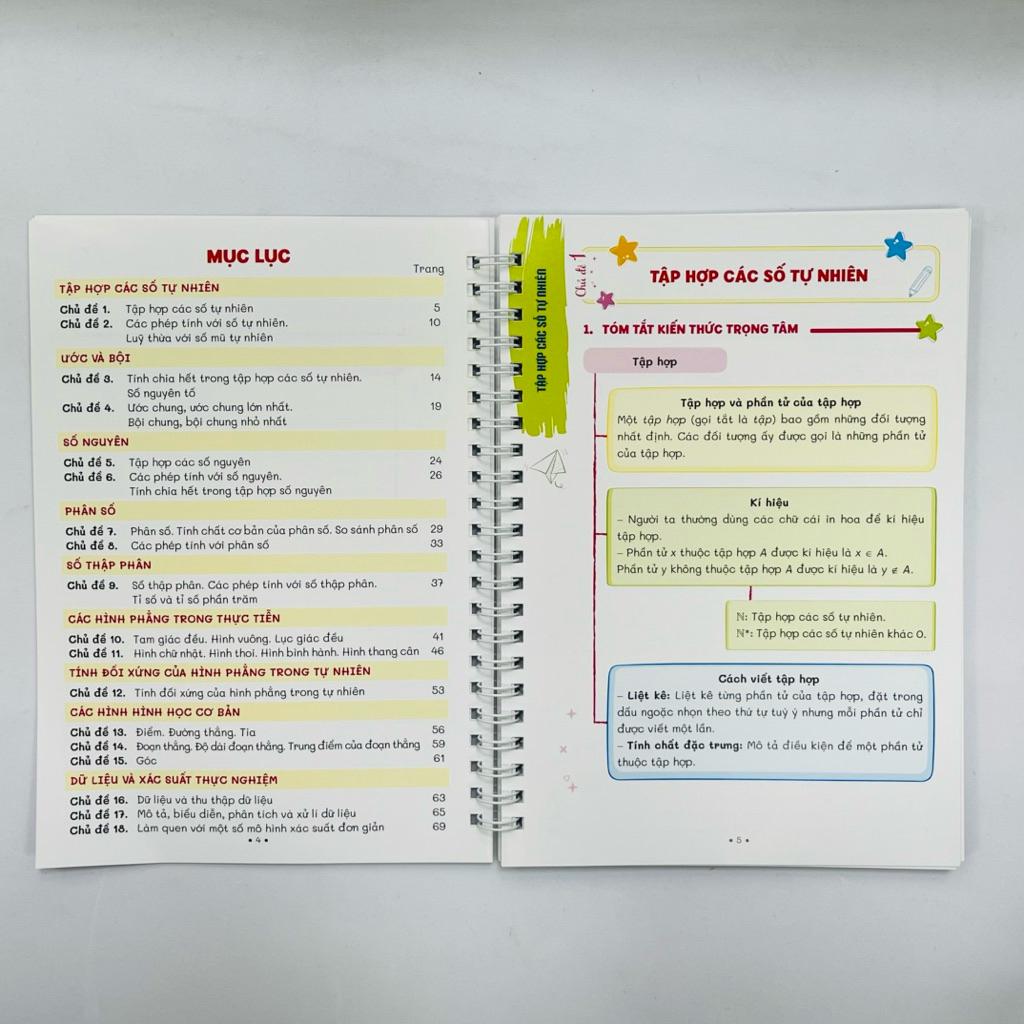 MỤC LỤC
Trang
TẬP HỢP CÁC SỐ TỰ NHIÊN
Chủ đề 1. Tập hợp các số tự nhiên 5
Chủ đề 2. Các phép tính với số tự nhiên. 10
Luỹ thừa với số mũ tự nhiên
ƯỚC VÀ BỘI
Chủ đề 3. Tính chia hết trong tập hợp các số tự nhiên. 14
Số nguyên tố
Chủ đề 4. Ước chung, ước chung lớn nhất. 19
Bội chung, bội chung nhỏ nhất
SỐ NGUYÊN
Chủ đề 5. Tập hợp các số nguyên 24
Chủ đề 6. Các phép tính với số nguyên. 26
Tính chia hết trong tập hợp số nguyên
PHÂN SỐ
Chủ đề 7. Phân số. Tính chất cơ bản của phân số. So sánh phân số 29
Chủ đề 8. Các phép tính với phân số 33
SỐ THẬP PHÂN
Chủ đề 9. Số thập phân. Các phép tính với số thập phân. 37
Tỉ số và tỉ số phần trăm
CÁC HÌNH PHẲNG TRONG THỰC TIỄN
Chủ đề 10. Tam giác đều. Hình vuông. Lục giác đều 41
Chủ đề 11. Hình chữ nhật. Hình thoi. Hình bình hành. Hình thang cân 46
TÍNH ĐỐI XỨNG CỦA HÌNH PHẲNG TRONG TỰ NHIÊN
Chủ đề 12. Tính đối xứng của hình phẳng trong tự nhiên 53
CÁC HÌNH HÌNH HỌC CƠ BẢN
Chủ đề 13. Điểm. Đường thẳng. Tia 56
Chủ đề 14. Đoạn thẳng. Độ dài đoạn thẳng. Trung điểm của đoạn thẳng 59
Chủ đề 15. Góc 61
DỮ LIỆU VÀ XÁC SUẤT THỰC NGHIỆM
Chủ đề 16. Dữ liệu và thu thập dữ liệu 63
Chủ đề 17. Mô tả, biểu diễn, phân tích và xử lí dữ liệu 65
Chủ đề 18. Làm quen với một số mô hình xác suất đơn giản 69
• 4 •
TẬP HỢP CÁC SỐ TỰ NHIÊN
Chủ đề 1
TẬP HỢP CÁC SỐ TỰ NHIÊN
1. TÓM TẮT KIẾN THỨC TRỌNG TÂM
Tập hợp
Tập hợp và phần tử của tập hợp
Một tập hợp (gọi tắt là tập) bao gồm những đối tượng
nhất định. Các đối tượng ấy được gọi là những phần tử
của tập hợp.
Kí hiệu
– Người ta thường dùng các chữ cái in hoa để kí hiệu
tập hợp.
– Phần tử x thuộc tập hợp A được kí hiệu là x ∈ A.
Phần tử y không thuộc tập hợp A được kí hiệu là y ∉ A.
ℕ: Tập hợp các số tự nhiên.
ℕ*: Tập hợp các số tự nhiên khác 0.
Cách viết tập hợp
– Liệt kê: Liệt kê từng phần tử của tập hợp, đặt trong
dấu ngoặc nhọn theo thứ tự tuỳ ý nhưng mỗi phần tử chỉ
được viết một lần.
– Tính chất đặc trưng: Mô tả điều kiện để một phần tử
thuộc tập hợp.
• 5 •